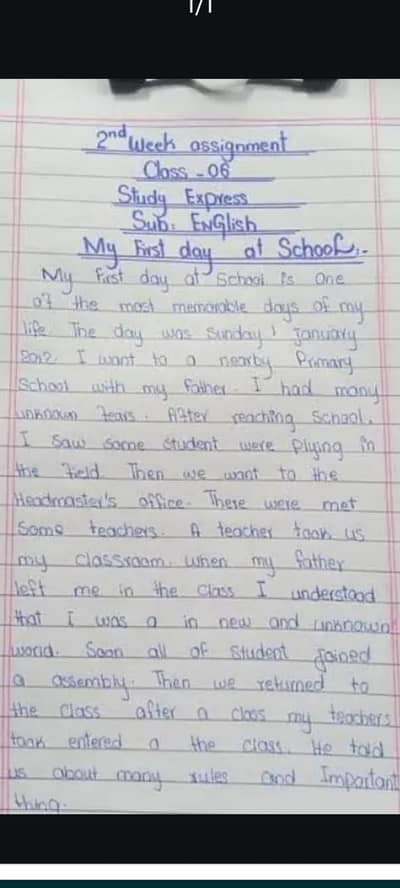 1/1
2nd Week assignment
Class - 06
Study Express
Sub: English
My First day at School:-
My first day at School is One
of the most memorable days of my
life. The day was Sunday 1 January
2012. I want to a nearby Primary
School with my Father. I had many
unknown fears. After reaching School,
I saw some student were plying in
the field. Then we want to the
Headmaster's office. There were met
Some teachers. A teacher took us
my classroom. when my father
left me in the class I understood
that I was a in new and unknown
world. Soon all of Student joined
a assembly. Then we returned to
the class after a class my teachers
took entered a the class. He told
us about many rules and Important
thing.